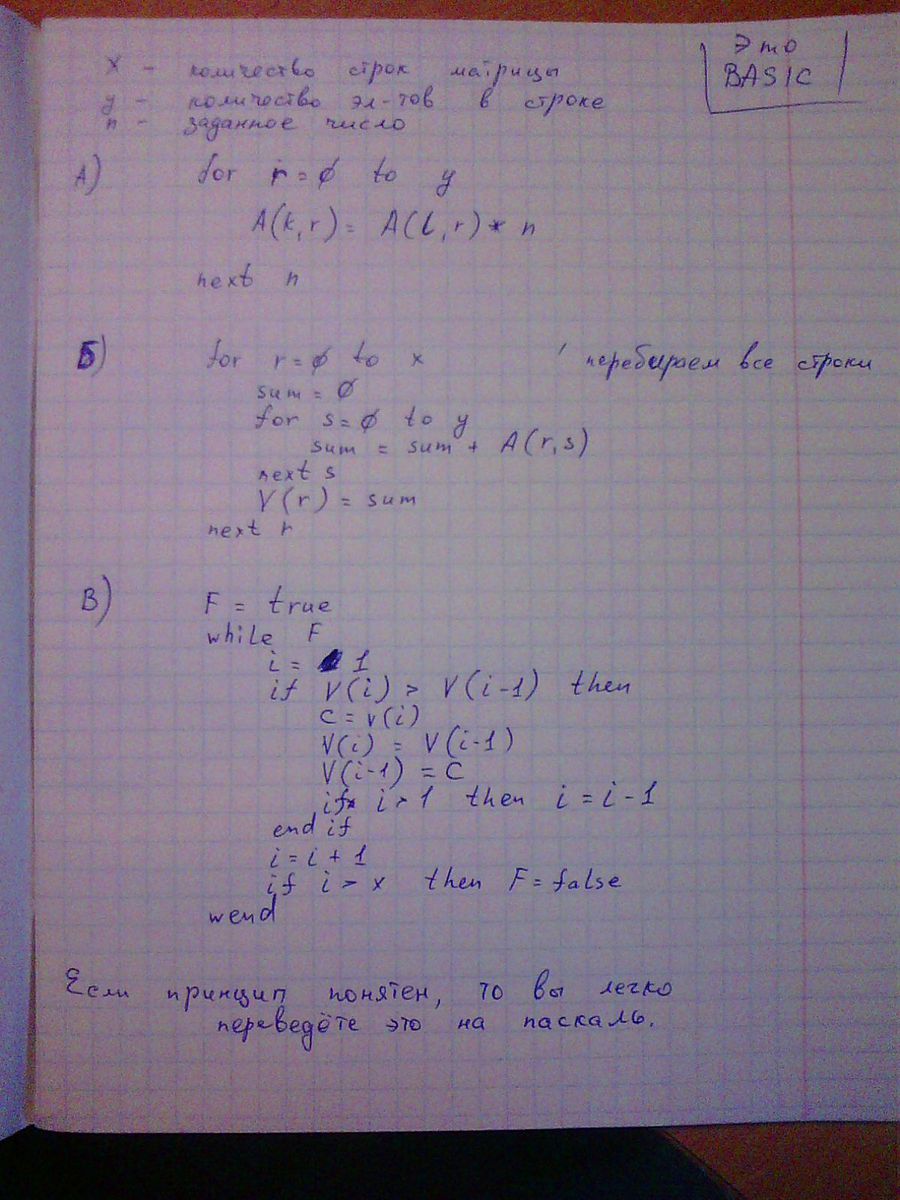 Это
BASIC
x - количество строк матрицы
y - количество эл-тов в строке
n - заданное число
А) for r = 0 to y
A(k,r) = A(l,r) * n
next n
Б) for r = 0 to x ' перебираем все строки
sum = 0
for s = 0 to y
sum = sum + A(r,s)
next s
V(r) = sum
next r
В) F = true
while F
i = 1
if V(i) > V(i-1) then
C = V(i)
V(i) = V(i-1)
V(i-1) = C
if i > 1 then i = i - 1
end if
i = i + 1
if i > x then F = false
wend
Если принцип понятен, то вы легко
переведёте это на паскаль.